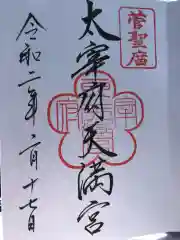 菅聖廟
太宰府天満宮
令和二年二月十七日